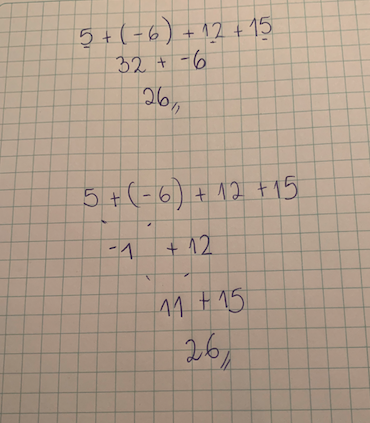 5 + (-6) + 12 + 15
32 + -6
26,,
5 + (-6) + 12 + 15
-1 + 12
11 + 15
26,,